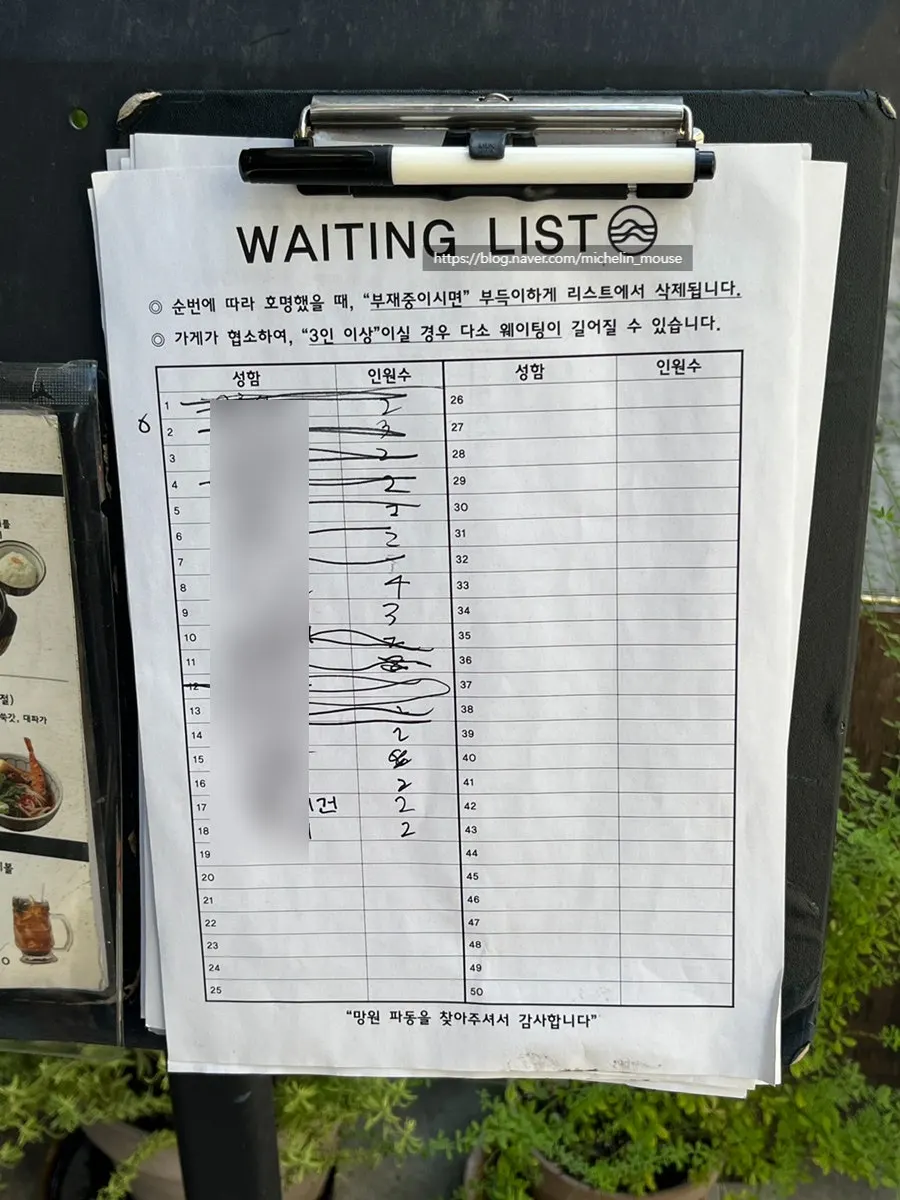 WAITING LIST
https://blog.naver.com/michelin_mouse
◎ 순번에 따라 호명했을 때, “부재중이시면” 부득이하게 리스트에서 삭제됩니다.
◎ 가게가 협소하여, “3인 이상”이실 경우 다소 웨이팅이 길어질 수 있습니다.
성함 인원수 성함 인원수
1 2 26
2 3 27
3 2 28
4 2 29
5 2 30
6 2 31
7 32
8 4 33
9 3 34
10 35
11 36
12 37
13 38
14 2 39
15 40
16 2 41
17 건 2 42
18 2 43
19 44
20 45
21 46
22 47
23 48
24 49
25 50
“망원 파동을 찾아주셔서 감사합니다”
절)
쑥갓, 대파가
볼